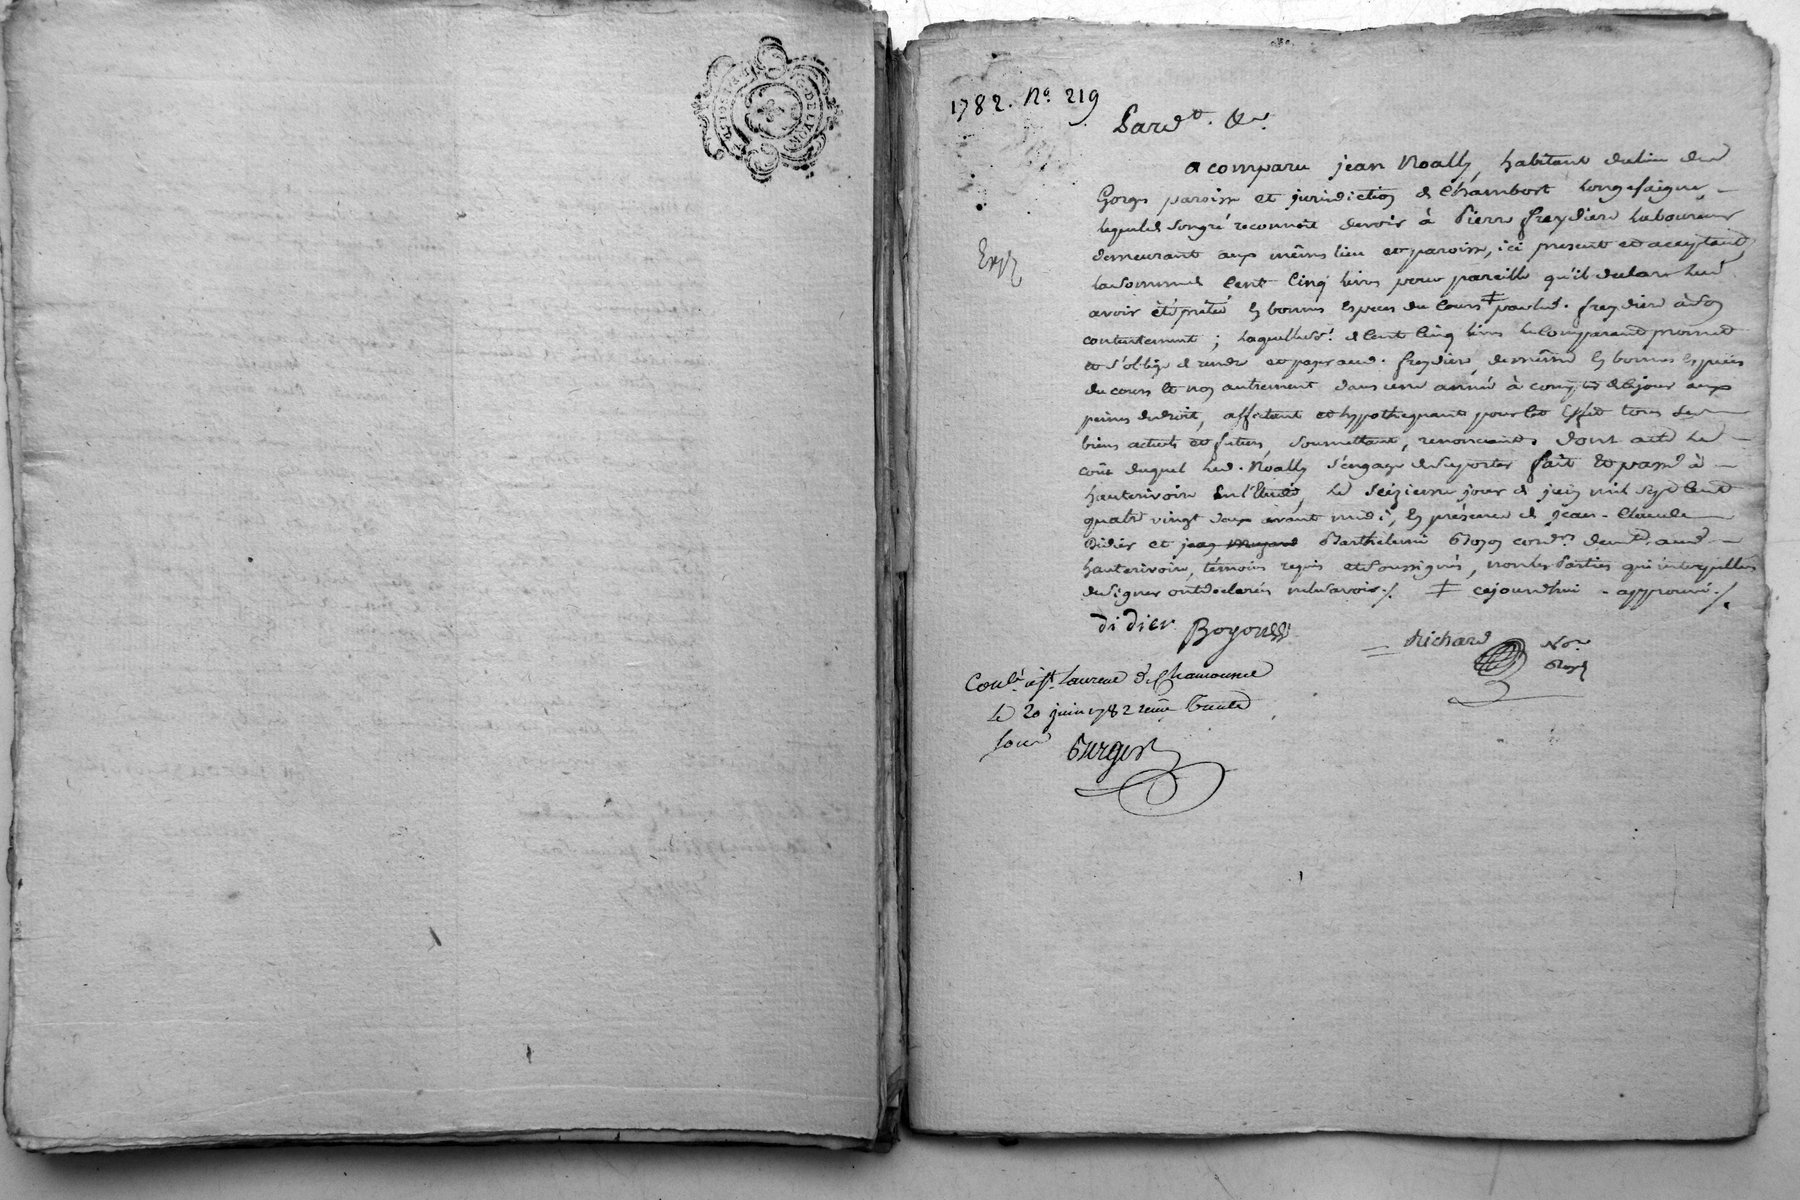 1782. No. 219
Pard.t &a.
a comparu jean Noally, habitant du lieu de
Gorgs paroisse et juridiction de Chambost longesaigne
lequel de son gré reconnoit devoir à Pierre freydiere laboureur
demeurant aux mêmes lieu et paroisse, ici present et acceptant
la somme de Cent Cinq livres pour pareille qu'il declare lui
avoir été pretée En bonnes Especes du Cours ‡ par led. freydiere à son
contentement ; laquelle so.e de Cent Cinq livres le Comparant promet
et s'oblige de rendre et payer aud. freydiere, de même En bonnes Especes
du cours Et non autrement dans une année à compter de ce jour aux
peines du droit, affectant et hypothequant pour cet Effet tous ses
biens actuels et futurs, soumettant, renonciants dont acte le
coût duquel led. Noally s'engage de suporter fait Et passé à
hauterivoire En l'Etude, le seizieme jour de juin mil sept Cent
quatre vingt deux avant midi, En présence de jean-Claude
Didier et Barthelemi Boyon cord.rs dem.t aud
hauterivoire, témoins requis et soussignés, non les Parties qui interpellées
de signer ont declarées ne le savoir ./. ‡ cejourd'hui - approuvé ./.
didier Boyon
Richard No.re
Royal
Exp.
Con.lé à St. Laurent de Chamousset
le 20 juin 1782 recu trente
sous